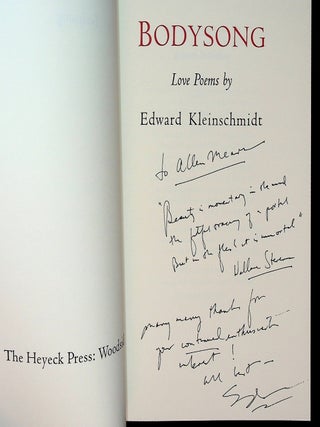 BODYSONG
Love Poems by
Edward Kleinschmidt
to Allen
"Beauty is momentary in the mind
the fitful tracing of a portal
But in the flesh it is immortal"
Wallace Stevens
many many thanks for
your continued enthusiastic
all best –
The Heyeck Press: